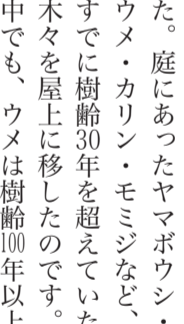 た。庭にあったヤマボウシ・
ウメ・カリン・モミジなど、
すでに樹齢30年を超えていた
木々を屋上に移したのです。
中でも、ウメは樹齢100年以上